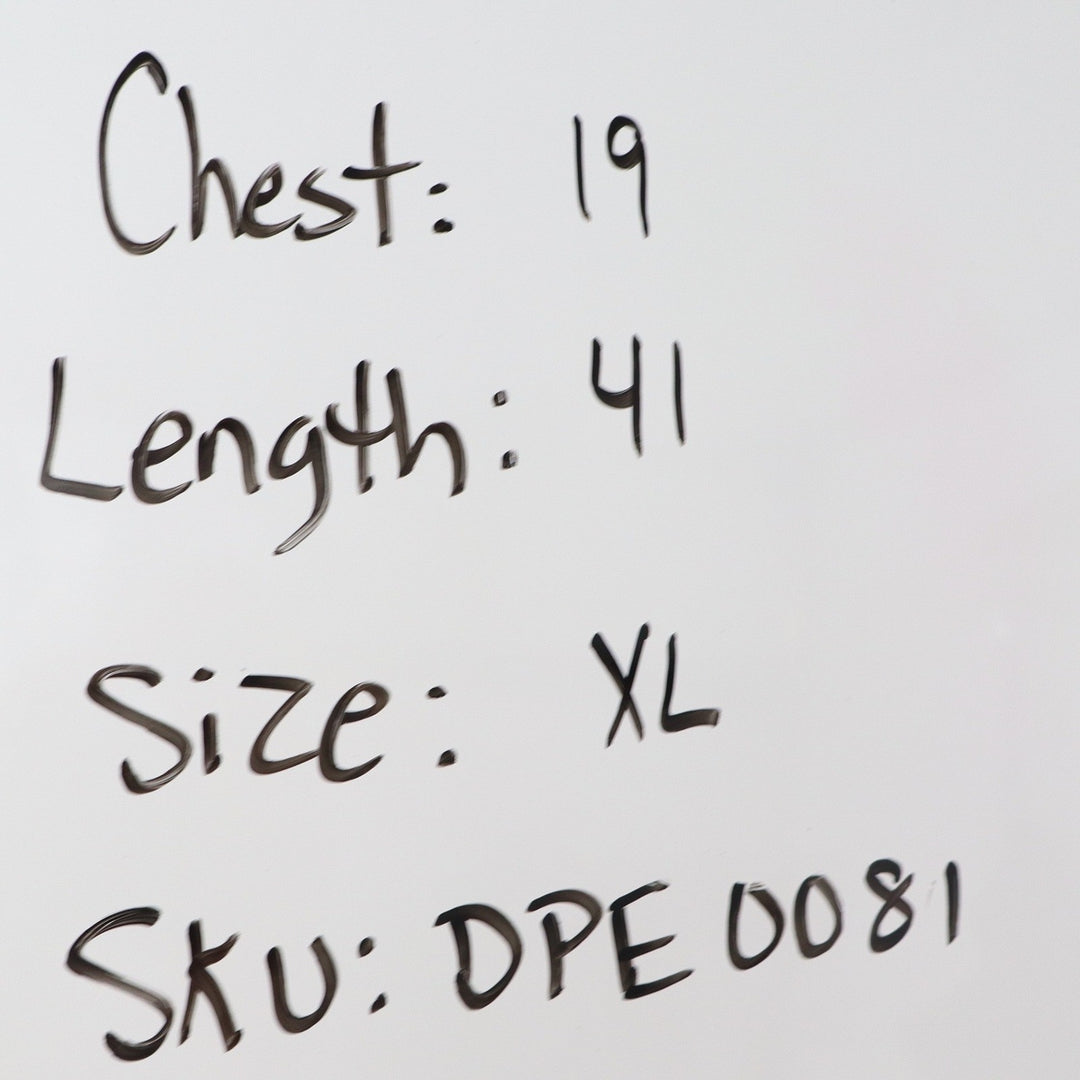 Chest: 19
Length: 41
Size: XL
SKU: DPE0081